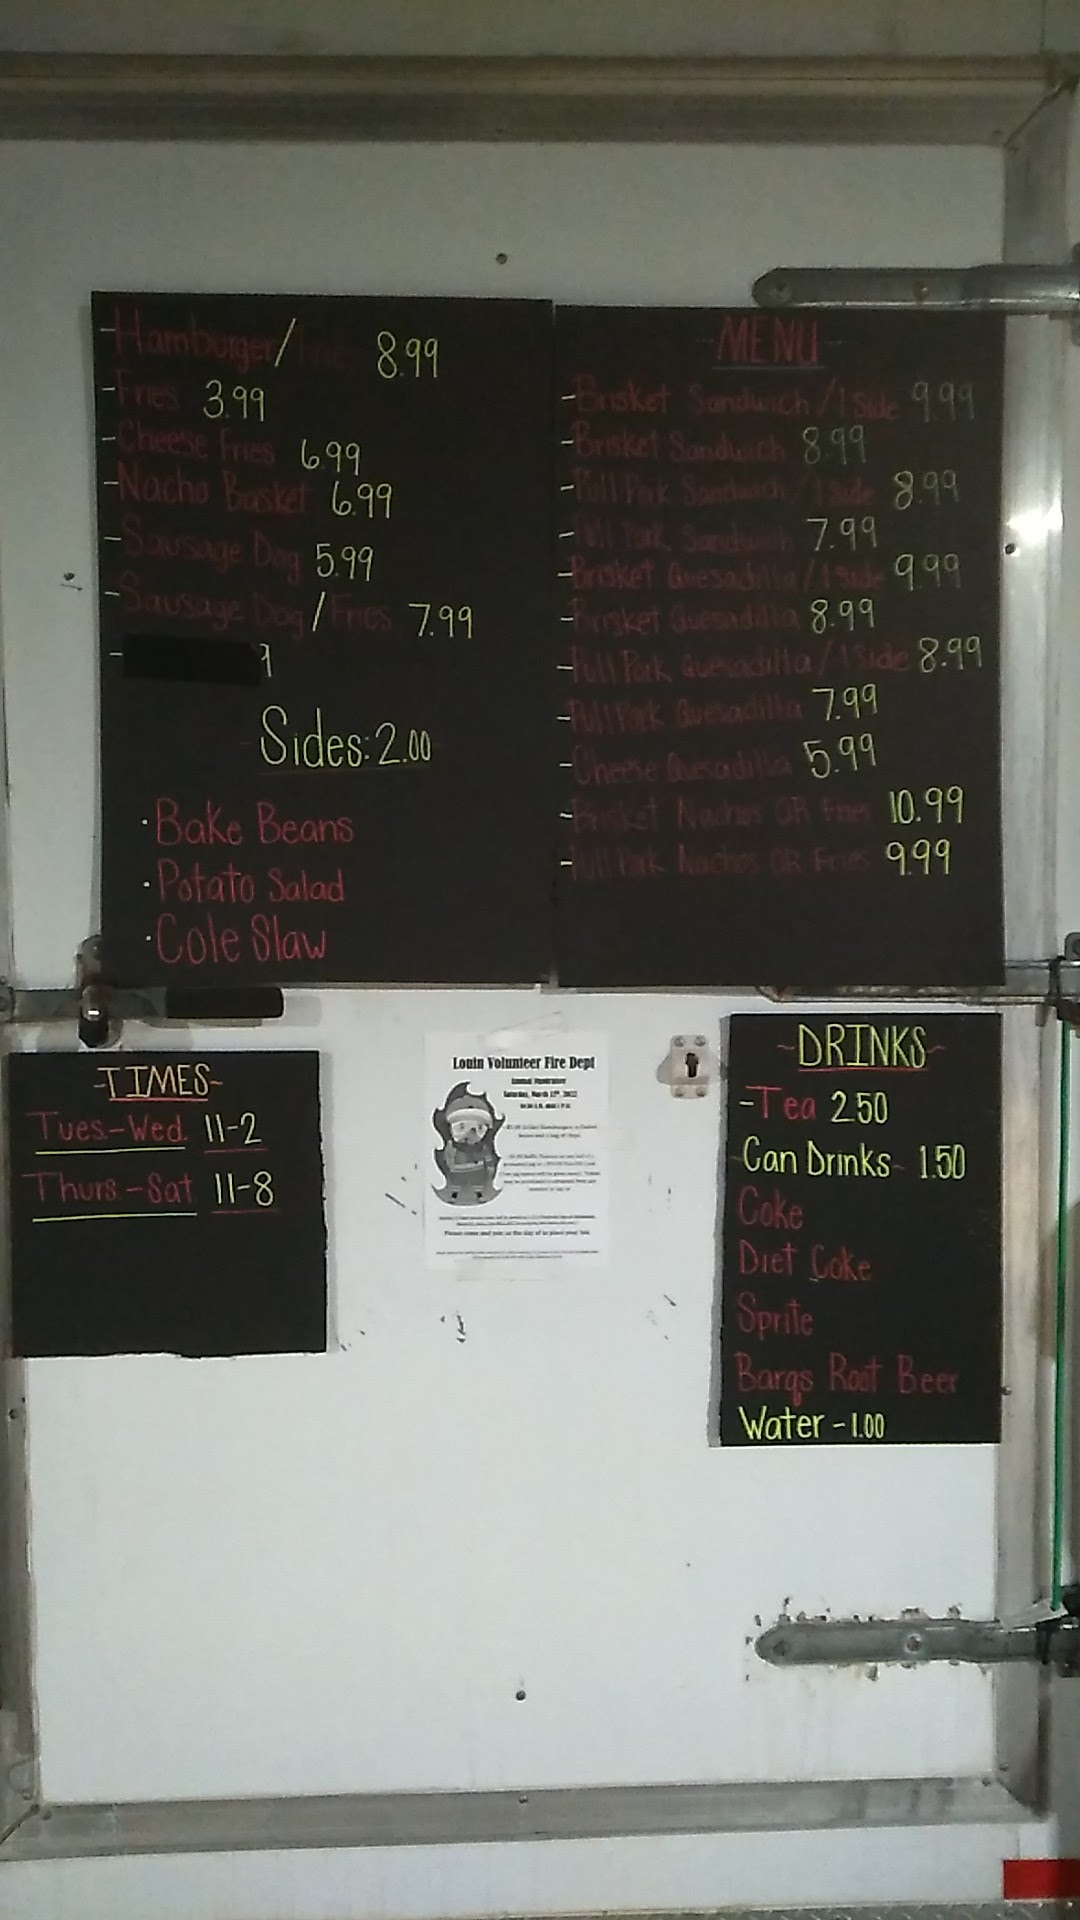 -Hamburger/Fries 8.99
-Fries 3.99
-Cheese Fries 6.99
-Nacho Basket 6.99
-Sausage Dog 5.99
-Sausage Dog/Fries 7.99
- 9
-Sides:2.00
·Bake Beans
·Potato Salad
·Cole Slaw
-MENU-
-Brisket Sandwich/1 Side 9.99
-Brisket Sandwich 8.99
-Pull Pork Sandwich/1 Side 8.99
-Pull Pork Sandwich 7.99
-Brisket Quesadilla/1 Side 9.99
-Brisket Quesadilla 8.99
-Pull Pork Quesadilla/1 Side 8.99
-Pull Pork Quesadilla 7.99
-Cheese Quesadilla 5.99
-Brisket Nachos OR Fries 10.99
-Pull Pork Nachos OR Fries 9.99
-TIMES-
Tues.-Wed. 11-2
Thurs.-Sat 11-8
Louin Volunteer Fire Dept
Annual Fundraiser
Saturday, March 12th, 2022
Please come and join us the day of to place your bid.
~DRINKS~
-Tea 2.50
-Can Drinks- 1.50
Coke
Diet Coke
Sprite
Barqs Root Beer
Water -1.00